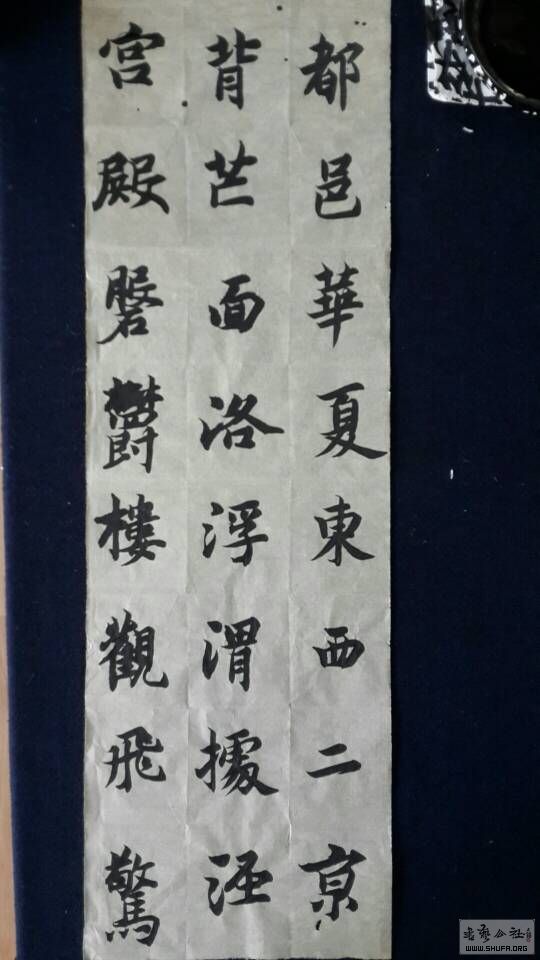 都邑華夏東西二京
背芒面洛浮渭據涇
宮殿磐鬱樓觀飛驚
WWW.SHUFA.ORG